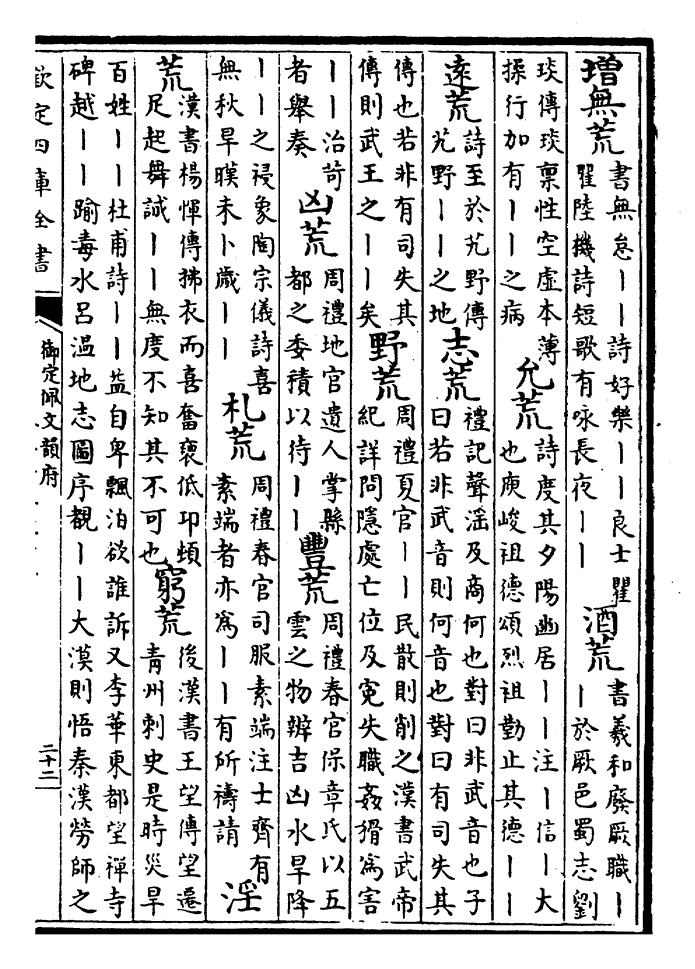 增無荒
書無怠丨丨詩好樂丨丨良士瞿
瞿陸機詩短歌有咏長夜丨丨
酒荒
書羲和廢厥職丨
丨於厥邑蜀志劉
琰傳琰稟性空虛本薄
操行加有丨丨之病
允荒
詩度其夕陽豳居丨丨注丨信丨大
也庾峻祖德頌烈祖勤止其德丨丨
遠荒
詩至於艽野傳
艽野丨丨之地
志荒
禮記聲淫及商何也對曰非武音也子
曰若非武音則何音也對曰有司失其
傳也若非有司失其
傳則武王之丨丨矣
野荒
周禮夏官丨丨民散則削之漢書武帝
紀詳問隱處亡位及寃失職姦猾為害
丨丨治苛
者舉奏
凶荒
周禮地官遺人掌縣
都之委積以待丨丨
豐荒
周禮春官保章氏以五
雲之物辨吉凶水旱降
丨丨之祲象陶宗儀詩喜
無秋旱暵未卜歲丨丨
札荒
周禮春官司服素端注士齊有
素端者亦為丨丨有所禱請
淫
荒
漢書楊惲傳拂衣而喜奮褎低卬頓
足起舞誠丨丨無度不知其不可也
窮荒
後漢書王望傳望遷
青州刺史是時災旱
百姓丨丨杜甫詩丨丨益自卑飄泊欲誰訴又李華東都望禪寺
碑越丨丨踰毒水呂温地志圖序覩丨丨大漠則悟秦漢勞師之
欽定四庫全書
御定佩文韻府
二十二